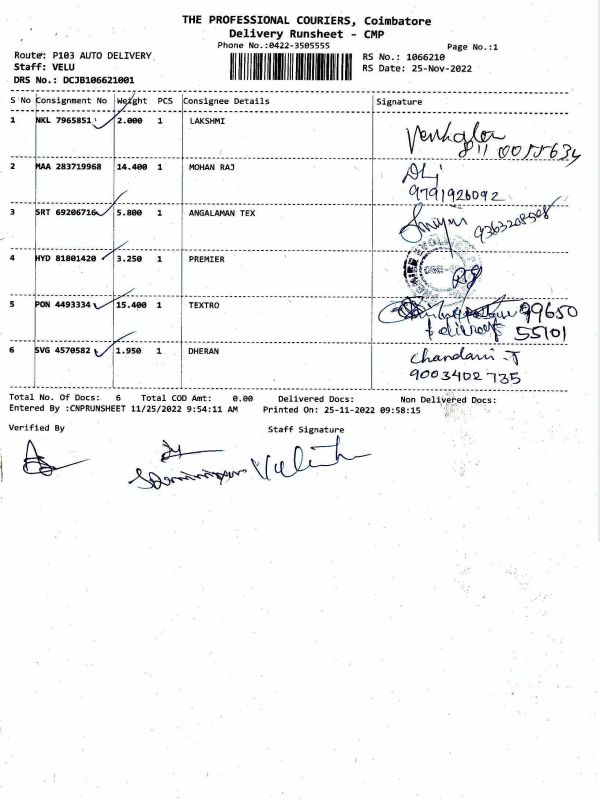 THE PROFESSIONAL COURIERS, Coimbatore
Delivery Runsheet - CMP
Phone No.:0422-3505555
Page No.:1
Route: P103 AUTO DELIVERY
RS No.: 1066210
Staff: VELU
RS Date: 25-Nov-2022
DRS No.: DCJB106621001
S No Consignment No Weight PCS Consignee Details Signature
1 NKL 7965851 2.000 1 LAKSHMI
2 MAA 283719968 14.400 1 MOHAN RAJ
9791926092
3 SRT 69206716 5.800 1 ANGALAMAN TEX
4 HYD 81801420 3.250 1 PREMIER
5 PON 4493334 15.400 1 TEXTRO
99650
55101
6 SVG 4570582 1.950 1 DHERAN
Chandani .J
9003402735
Total No. Of Docs: 6 Total COD Amt: 0.00 Delivered Docs: Non Delivered Docs:
Entered By :CNPRUNSHEET 11/25/2022 9:54:11 AM Printed On: 25-11-2022 09:58:15
Verified By Staff Signature